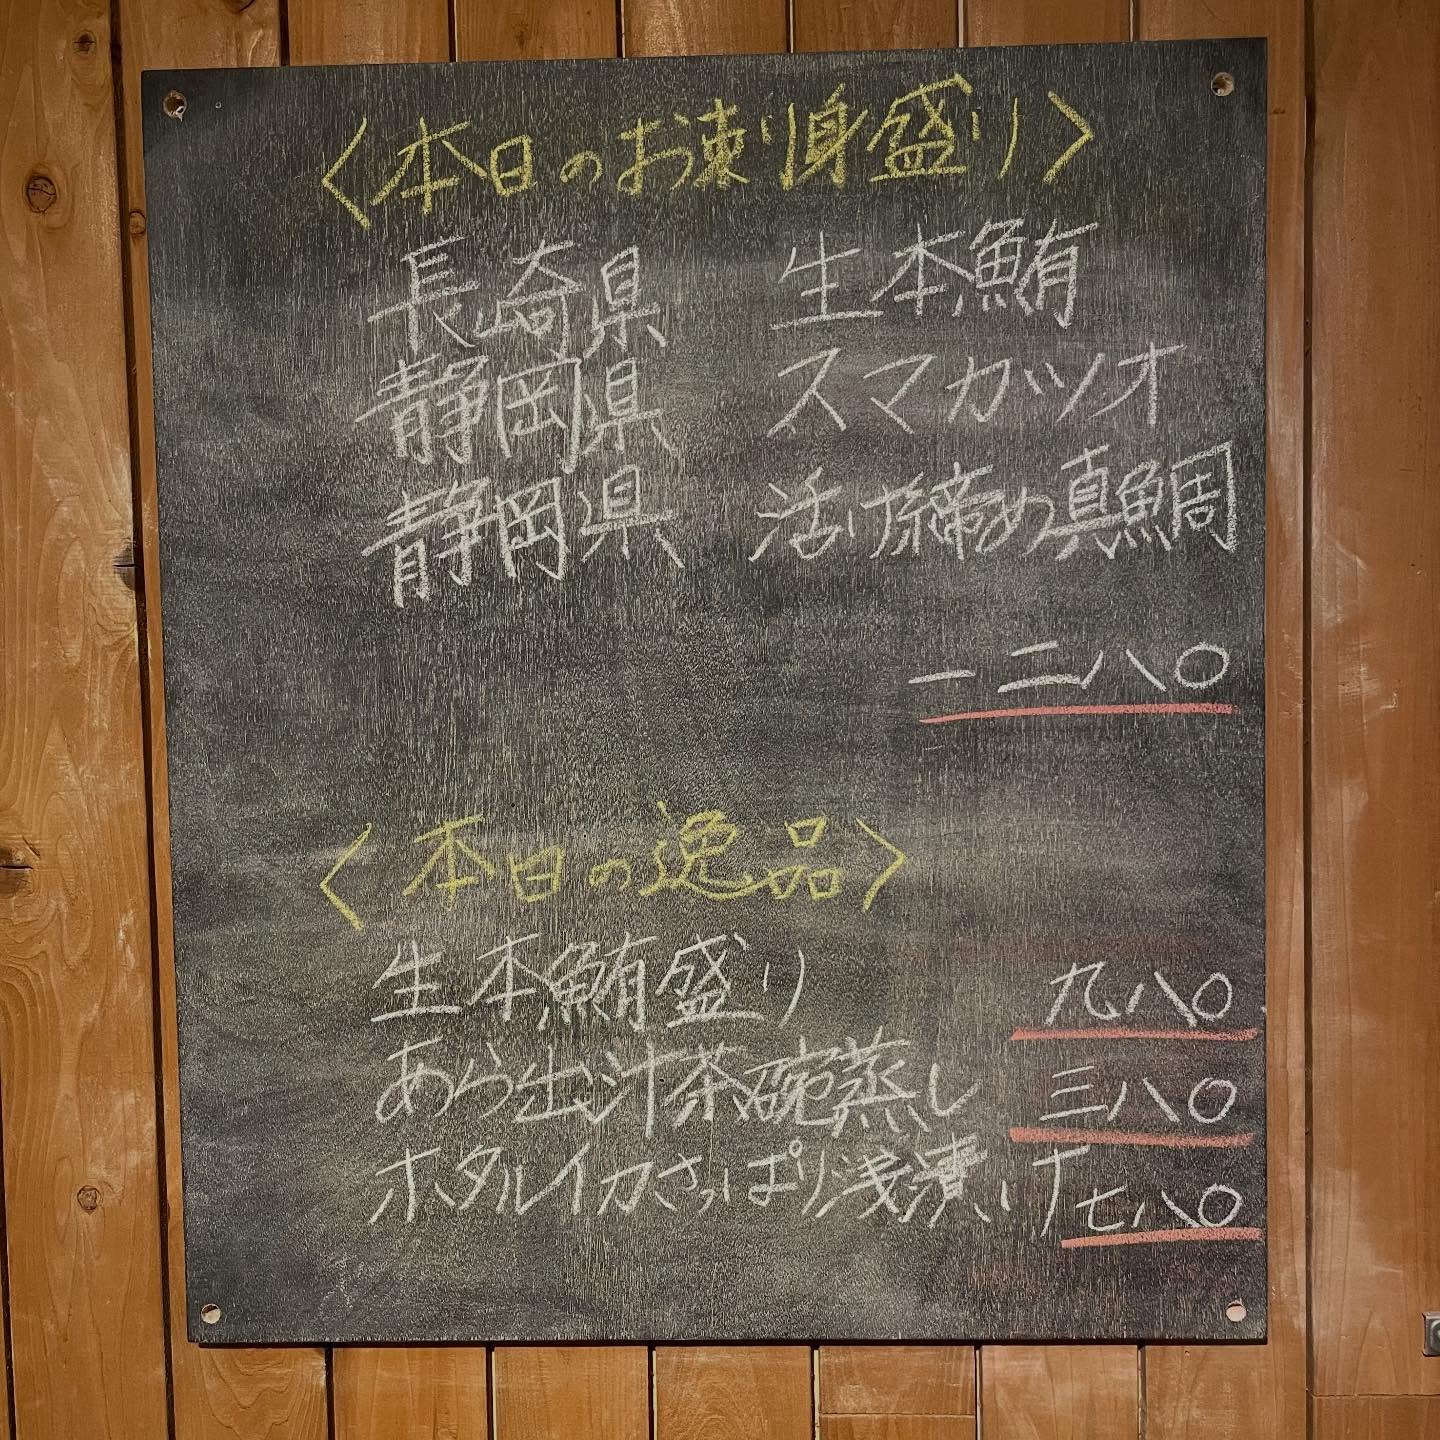 〈本日のお刺身盛り〉
長崎県 生本鮪
静岡県 スマカツオ
静岡県 活け〆締め真鯛
一二八〇
〈本日の逸品〉
生本鮪盛り 九八〇
あら出汁茶碗蒸し 三八〇
ホタルイカさっぱり浅漬け 七八〇